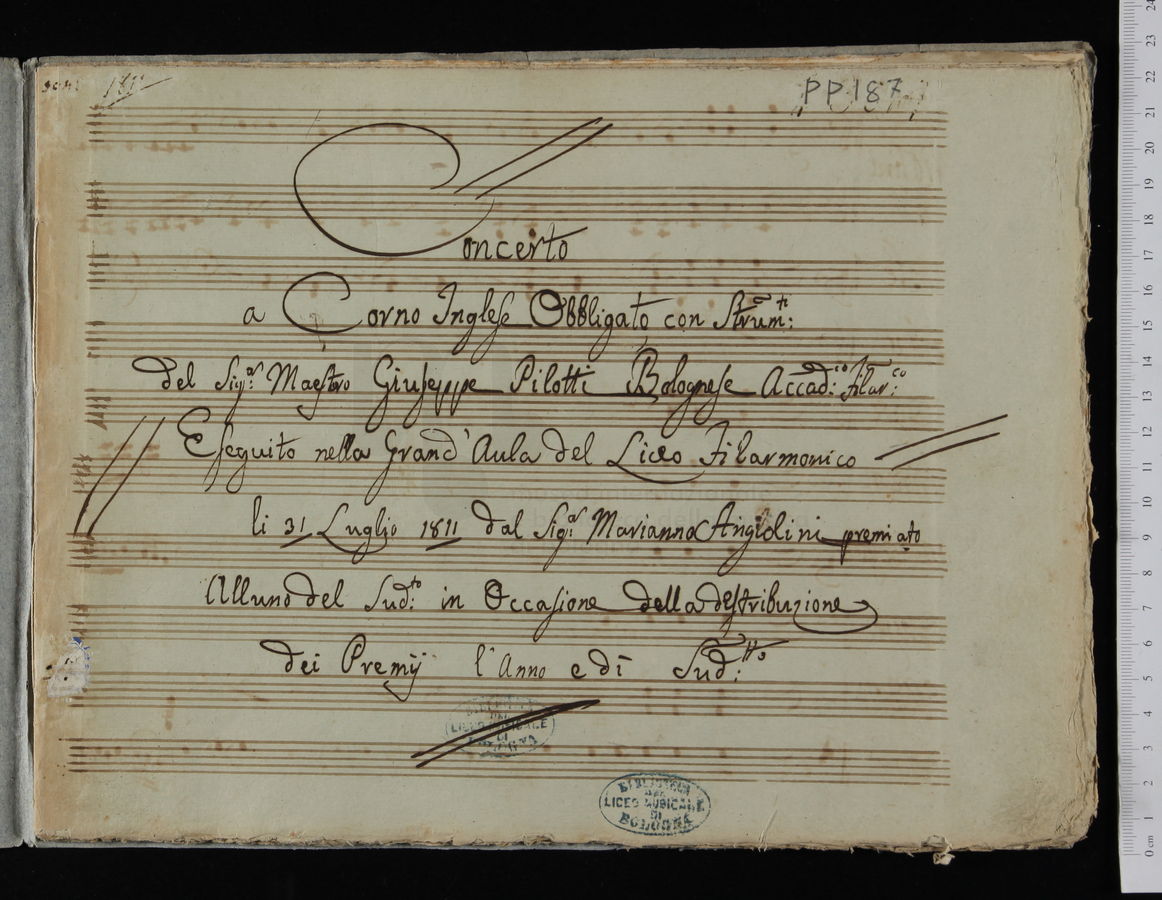 1811
PP187
Concerto
a Corno Inglese Obbligato con Strum:ti
del Sig:or Maestro Giuseppe Pilotti Bolognese Accad:co Filar:co
Eseguito nella Grand'Aula del Liceo Filarmonico
li 31 Luglio 1811 dal Sig:or Marianno Angiolini premiato
Alluno del Sud:to in Occasione della destribuzione
dei Premij l'Anno e dì Sud:tto
LICEO MUSICALE
DI
BOLOGNA
BIBLIOTECA
DEL
LICEO MUSICALE
DI
BOLOGNA